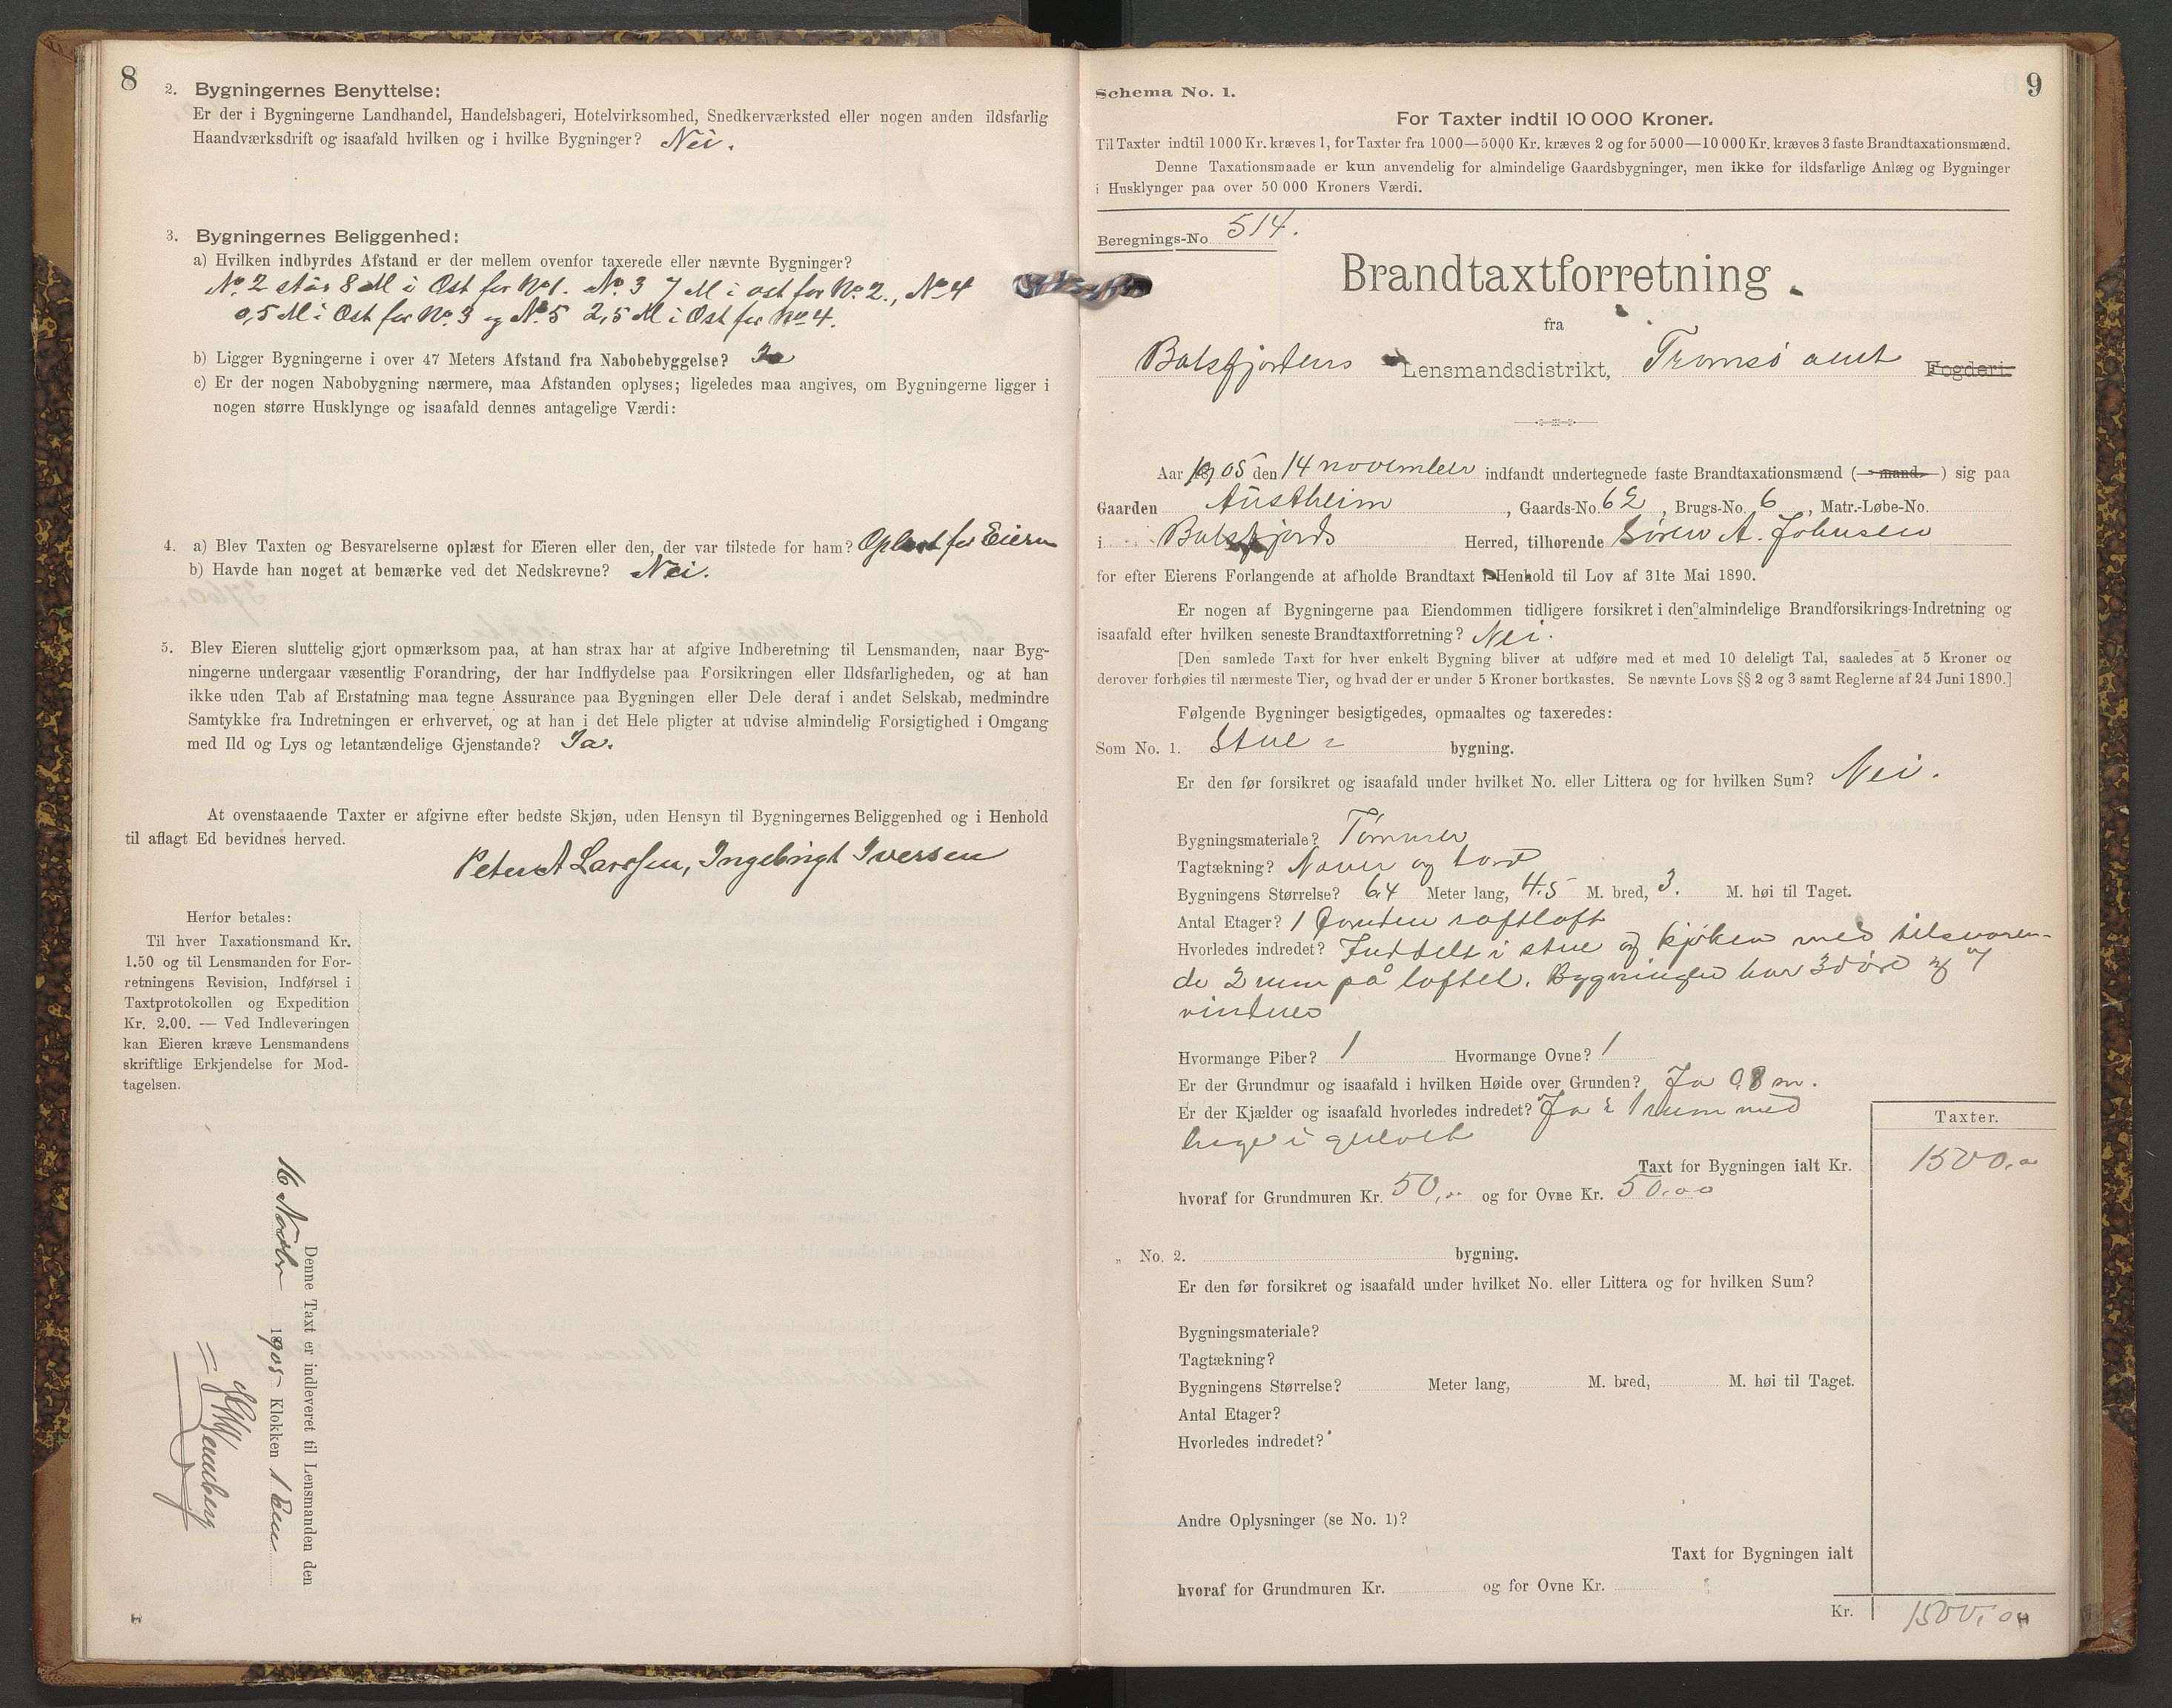 8
2. Bygningernes Benyttelse:
Er der i Bygningerne Landhandel, Handelsbageri, Hotelvirksomhed, Snedkerværksted eller nogen anden ildsfarlig
Haandværksdrift og isaafald hvilken og i hvilke Bygninger? Nei.
3. Bygningernes Beliggenhed:
a) Hvilken indbyrdes Afstand er der mellem ovenfor taxerede eller nævnte Bygninger?
No. 2 står 8 M i Øst for No 1. No. 3 7 M i øst for No. 2., No 4
0,5 M i Øst for No. 3 og No. 5 2,5 M i Øst for No 4.
b) Ligger Bygningerne i over 47 Meters Afstand fra Nabobebyggelse? Ja
c) Er der nogen Nabobygning nærmere, maa Afstanden oplyses; ligeledes maa angives, om Bygningerne ligger i
nogen større Husklynge og isaafald dennes antagelige Værdi:
4. a) Blev Taxten og Besvarelserne oplæst for Eieren eller den, der var tilstede for ham? Oplæst for Eieren
b) Havde han noget at bemærke ved det Nedskrevne? Nei.
5. Blev Eieren sluttelig gjort opmærksom paa, at han strax har at afgive Indberetning til Lensmanden, naar Byg-
ningerne undergaar væsentlig Forandring, der har Indflydelse paa Forsikringen eller Ildsfarligheden, og at han
ikke uden Tab af Erstatning maa tegne Assurance paa Bygningen eller Dele deraf i andet Selskab, medmindre
Samtykke fra Indretningen er erhvervet, og at han i det Hele pligter at udvise almindelig Forsigtighed i Omgang
med Ild og Lys og letantændelige Gjenstande? Ja.
At ovenstaaende Taxter er afgivne efter bedste Skjøn, uden Hensyn til Bygningernes Beliggenhed og i Henhold
til aflagt Ed bevidnes herved.
Peter A Larssen, Ingebrigt Iversen
Herfor betales:
Til hver Taxationsmand Kr.
1.50 og til Lensmanden for For-
retningens Revision, Indførsel i
Taxtprotokollen og Expedition
Kr. 2.00. — Ved Indleveringen
kan Eieren kræve Lensmandens
skriftlige Erkjendelse for Mod-
tagelsen.
Denne Taxt er indleveret til Lensmanden den
16 Novbr 1905 Klokken 1 Em
9
Schema No. 1.
For Taxter indtil 10 000 Kroner.
Til Taxter indtil 1000 Kr. kræves 1, for Taxter fra 1000—5000 Kr. kræves 2 og for 5000—10 000 Kr. kræves 3 faste Brandtaxationsmænd.
Denne Taxationsmaade er kun anvendelig for almindelige Gaardsbygninger, men ikke for ildsfarlige Anlæg og Bygninger
i Husklynger paa over 50 000 Kroners Værdi.
Beregnings-No 514.
Brandtaxtforretning
fra
Balsfjordens Lensmandsdistrikt, Tromsø amt Fogderi.
Aar 1905 den 14 november indfandt undertegnede faste Brandtaxationsmænd (—mand—) sig paa
Gaarden Austheim, Gaards-No. 62, Brugs-No. 6, Matr.-Løbe-No.
i Balsfjords Herred, tilhørende Søren A. Johnsen
for efter Eierens Forlangende at afholde Brandtaxt i Henhold til Lov af 31te Mai 1890.
Er nogen af Bygningerne paa Eiendommen tidligere forsikret i den almindelige Brandforsikrings-Indretning og
isaafald efter hvilken seneste Brandtaxtforretning? Nei.
[Den samlede Taxt for hver enkelt Bygning bliver at udføre med et med 10 deleligt Tal, saaledes at 5 Kroner og
derover forhøies til nærmeste Tier, og hvad der er under 5 Kroner bortkastes. Se nævnte Lovs §§ 2 og 3 samt Reglerne af 24 Juni 1890.]
Følgende Bygninger besigtigedes, opmaaltes og taxeredes:
Som No. 1. Stue = bygning.
Er den før forsikret og isaafald under hvilket No. eller Littera og for hvilken Sum? Nei.
Bygningsmateriale? Tømmer
Tagtækning? Næver og torv
Bygningens Størrelse? 6.4 Meter lang, 4.5 M. bred, 3. M. høi til Taget.
Antal Etager? 1 foruden raftloft
Hvorledes indredet? Inddelt i stue og kjøken med tilsvaren-
de 2 rum på loftet. Bygningen har 3 døre og 7
vinduer
Hvormange Piber? 1 Hvormange Ovne? 1
Er der Grundmur og isaafald i hvilken Høide over Grunden? Ja 0,8 m.
Er der Kjælder og isaafald hvorledes indredet? Ja i 1 rum med
i gulvet
Taxter.
Taxt for Bygningen ialt Kr. 1500,00
hvoraf for Grundmuren Kr. 50,00 og for Ovne Kr. 50,00
„ No. 2. bygning.
Er den før forsikret og isaafald under hvilket No. eller Littera og for hvilken Sum?
Bygningsmateriale?
Tagtækning?
Bygningens Størrelse? Meter lang, M. bred, M. høi til Taget.
Antal Etager?
Hvorledes indredet?
Andre Oplysninger (se No. 1)?
Taxt for Bygningen ialt
hvoraf for Grundmuren Kr. og for Ovne Kr.
Kr. 1500,00